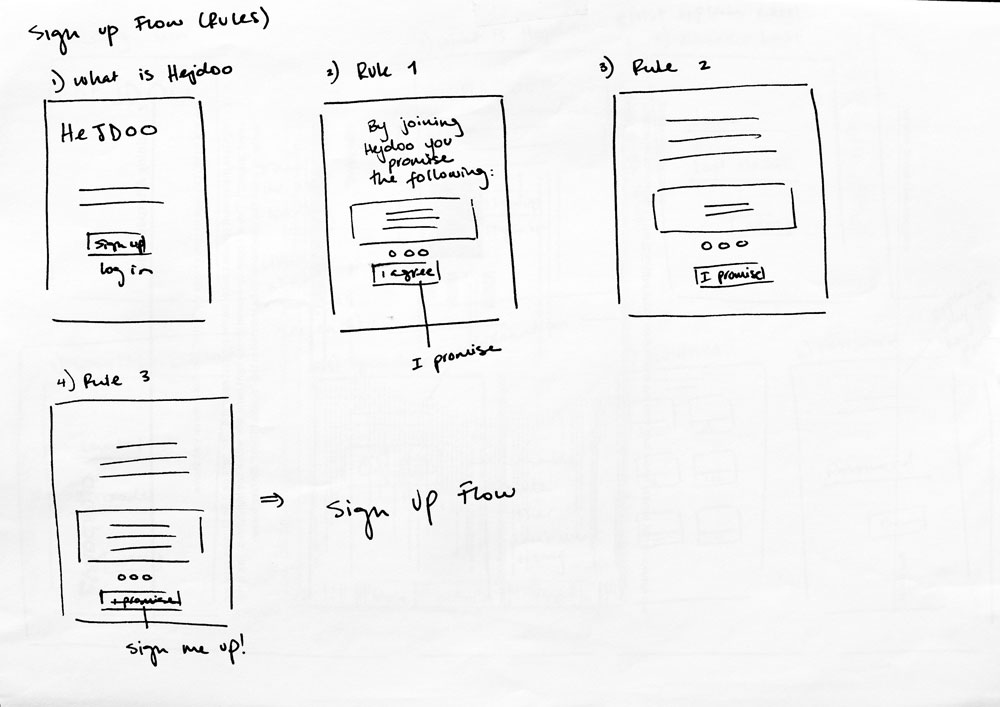 Sign up Flow (Rules)
1) What is Hejdoo
HeJDOO
sign up
log in
2) Rule 1
By joining
Hejdoo you
promise
the following:
I agree
I promise
3) Rule 2
I promise
4) Rule 3
I promise
sign me up!
⇒ Sign Up Flow